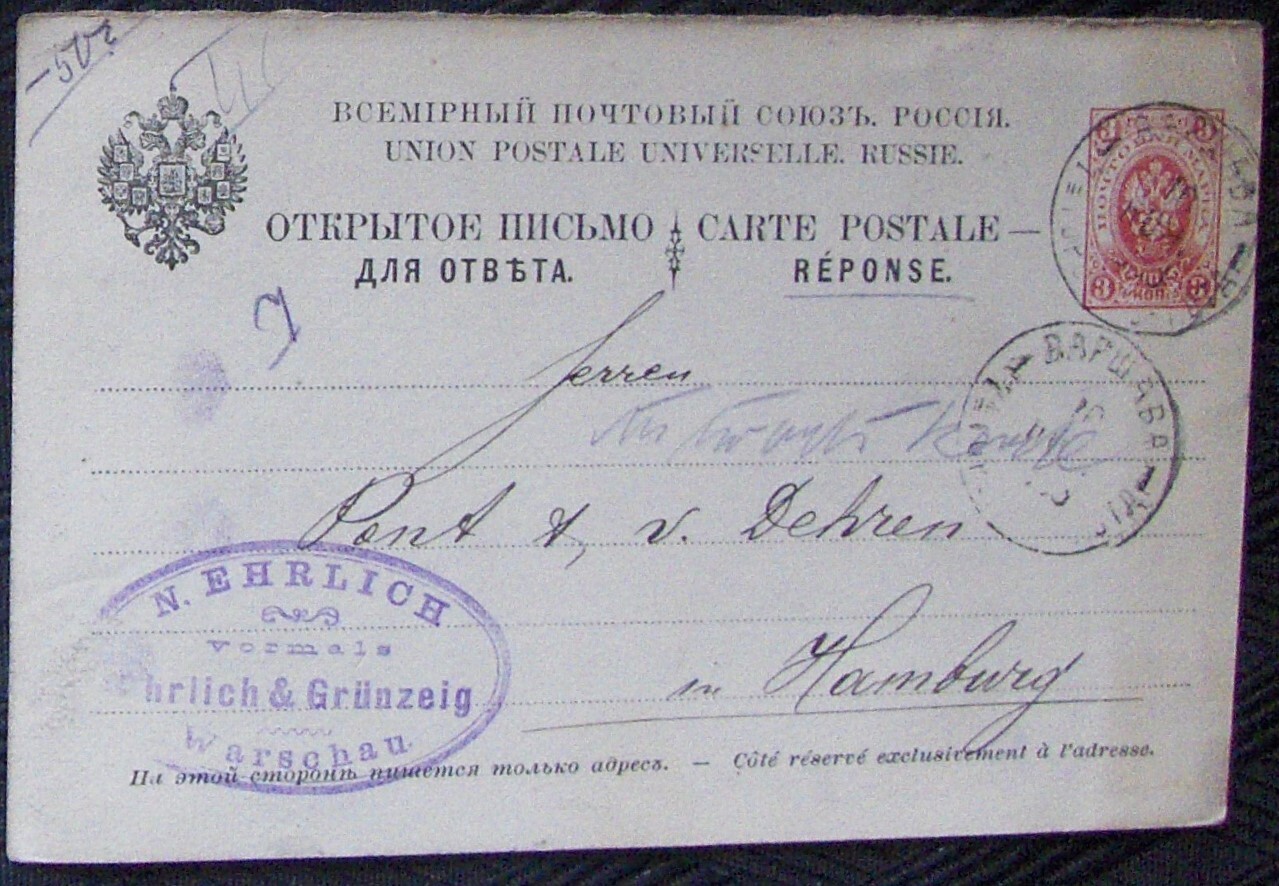 -50
ВСЕМІРНЫЙ ПОЧТОВЫЙ СОЮЗЪ. РОССІЯ.
UNION POSTALE UNIVERSELLE. RUSSIE.
ОТКРЫТОЕ ПИСЬМО CARTE POSTALE —
ДЛЯ ОТВѢТА. RÉPONSE.
3 3
ПОЧТОВАЯ МАРКА
3 КОП. 3
ВАРШАВА
Herren
ВАРШАВА
Pont & v. Dehren
N. EHRLICH
vormals
hrlich & Grünzeig
Warschau
in Hamburg
На этой сторонѣ пишется только адресъ. — Côté réservé exclusivement à l'adresse.